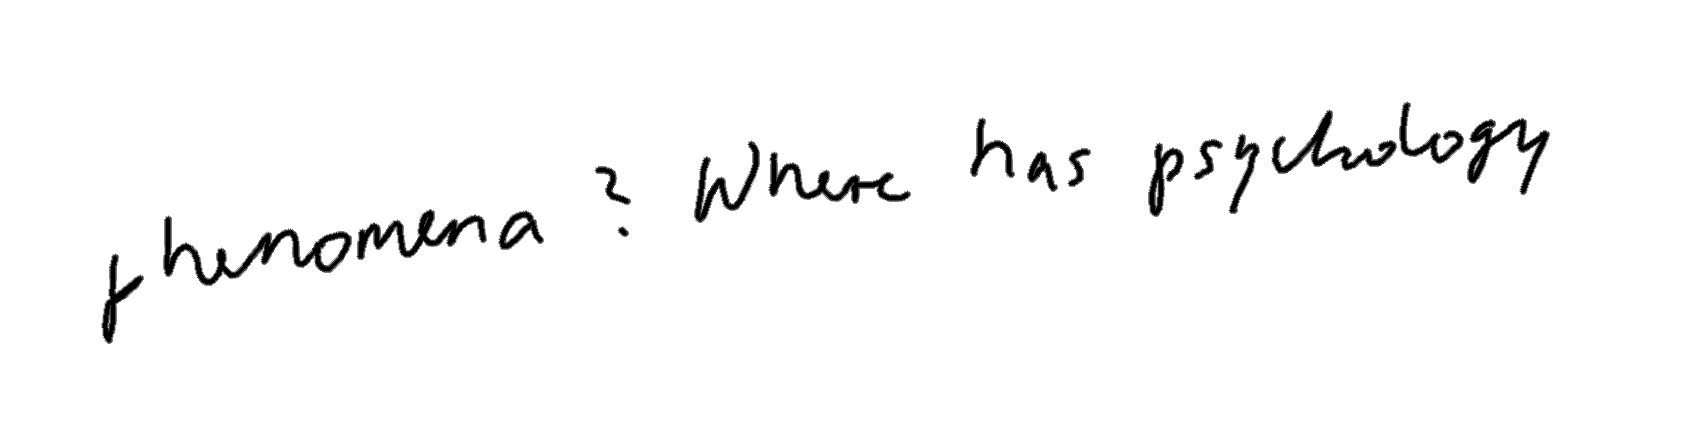 phenomena? Where has psychology